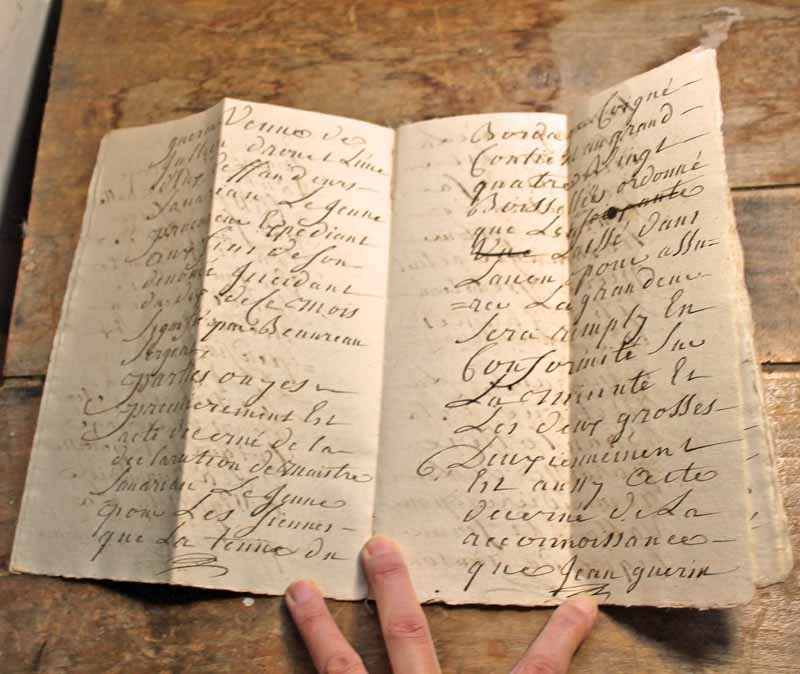 guerin Venne de
Jullien drouet Lune
d'Eux dessandeurs
Janurian Le Jenne
procureur Expediant
aux fins de son
denoncé gueridant
du dix de Ce mois
Signiffié par Beaureau
Sergent
parties ouyes
premierement Est
acte decerné de la
declaration de maistre
Janurian Le Jenne
pour Les Siennes
que La tenne du
Bordage Coigné
Contient au grand
quatre Vingt
Boissellées ordonné
que L'enfourpante
Une Laissé dans
Lanon pour assu=
=rer La grandeur
Sera remply En
Conformité Sur
La minute Et
Les deux grosses
Deuxiennement
Est aussy acte
decerné de La
reconnoissance
que Jean guerin